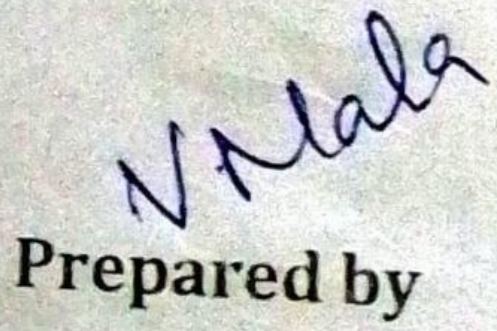 N Mala
Prepared by